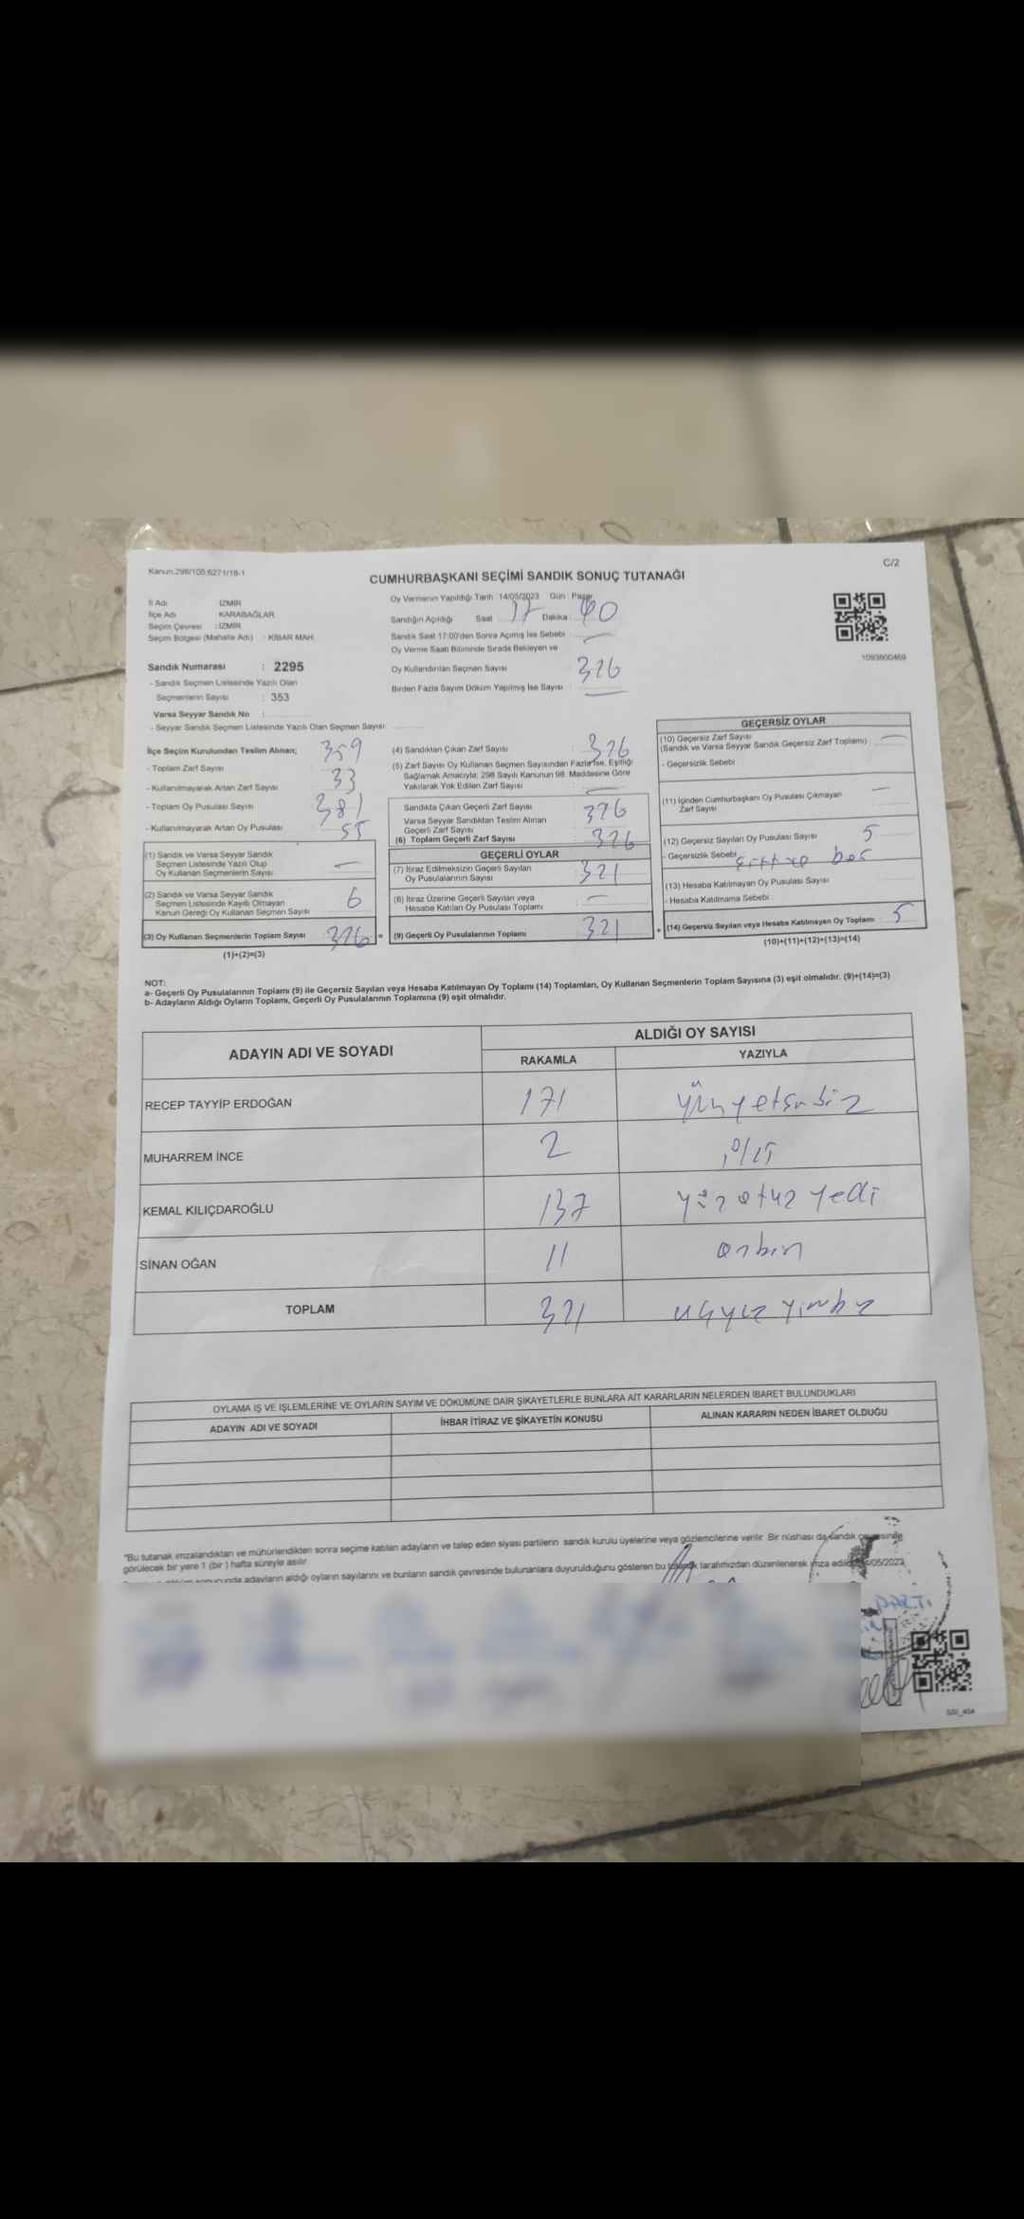 Kanun:298/105,6271/18-1
C/2
CUMHURBAŞKANI SEÇİMİ SANDIK SONUÇ TUTANAĞI
İl Adı İZMİR
İlçe Adı : KARABAĞLAR
Seçim Çevresi : İZMİR
Seçim Bölgesi (Mahalle Adı) : KİBAR MAH.
Sandık Numarası : 2295
- Sandık Seçmen Listesinde Yazılı Olan
Seçmenlerin Sayısı : 353
Varsa Seyyar Sandık No :
- Seyyar Sandık Seçmen Listesinde Yazılı Olan Seçmen Sayısı
Oy Vermenin Yapıldığı Tarih 14/05/2023 Gün : Pazar
Sandığın Açıldığı Saat 17 Dakika : 40
Sandık Saat 17:00'den Sonra Açılmış İse Sebebi
Oy Verme Saati Bitiminde Sırada Bekleyen ve
Oy Kullandırılan Seçmen Sayısı 326
Birden Fazla Sayım Döküm Yapılmış İse Sayısı :
1093600469
İlçe Seçim Kurulundan Teslim Alınan;
- Toplam Zarf Sayısı 359
- Kullanılmayarak Artan Zarf Sayısı 33
- Toplam Oy Pusulası Sayısı 381
- Kullanılmayarak Artan Oy Pusulası 55
(1) Sandık ve Varsa Seyyar Sandık
Seçmen Listesinde Yazılı Olup
Oy Kullanan Seçmenlerin Sayısı —
(2) Sandık ve Varsa Seyyar Sandık
Seçmen Listesinde Kayıtlı Olmayan
Kanun Gereği Oy Kullanan Seçmen Sayısı 6
(3) Oy Kullanan Seçmenlerin Toplam Sayısı 326 =
(1)+(2)=(3)
(4) Sandıktan Çıkan Zarf Sayısı 326
(5) Zarf Sayısı Oy Kullanan Seçmen Sayısından Fazla İse, Eşitliği
Sağlamak Amacıyla; 298 Sayılı Kanunun 98. Maddesine Göre
Yakılarak Yok Edilen Zarf Sayısı —
Sandıkta Çıkan Geçerli Zarf Sayısı 326
Varsa Seyyar Sandıktan Teslim Alınan
Geçerli Zarf Sayısı
(6) Toplam Geçerli Zarf Sayısı 326
GEÇERLİ OYLAR
(7) İtiraz Edilmeksizin Geçerli Sayılan
Oy Pusulalarının Sayısı 321
(8) İtiraz Üzerine Geçerli Sayılan veya
Hesaba Katılan Oy Pusulası Toplamı —
(9) Geçerli Oy Pusulalarının Toplamı 321 +
GEÇERSİZ OYLAR
(10) Geçersiz Zarf Sayısı
(Sandık ve Varsa Seyyar Sandık Geçersiz Zarf Toplamı) —
- Geçersizlik Sebebi
(11) İçinden Cumhurbaşkanı Oy Pusulası Çıkmayan
Zarf Sayısı —
(12) Geçersiz Sayılan Oy Pusulası Sayısı 5
- Geçersizlik Sebebi
(13) Hesaba Katılmayan Oy Pusulası Sayısı
- Hesaba Katılmama Sebebi
(14) Geçersiz Sayılan veya Hesaba Katılmayan Oy Toplamı 5
(10)+(11)+(12)+(13)=(14)
NOT:
a- Geçerli Oy Pusulalarının Toplamı (9) ile Geçersiz Sayılan veya Hesaba Katılmayan Oy Toplamı (14) Toplamları, Oy Kullanan Seçmenlerin Toplam Sayısına (3) eşit olmalıdır. (9)+(14)=(3)
b- Adayların Aldığı Oyların Toplamı, Geçerli Oy Pusulalarının Toplamına (9) eşit olmalıdır.
ADAYIN ADI VE SOYADI
ALDIĞI OY SAYISI
RAKAMLA YAZIYLA
RECEP TAYYİP ERDOĞAN 171
MUHARREM İNCE 2
KEMAL KILIÇDAROĞLU 137 yüz otuz yedi
SİNAN OĞAN 11 onbir
TOPLAM 321
OYLAMA İŞ VE İŞLEMLERİNE VE OYLARIN SAYIM VE DÖKÜMÜNE DAİR ŞİKAYETLERLE BUNLARA AİT KARARLARIN NELERDEN İBARET BULUNDUKLARI
ADAYIN ADI VE SOYADI İHBAR İTİRAZ VE ŞİKAYETİN KONUSU ALINAN KARARIN NEDEN İBARET OLDUĞU
"Bu tutanak imzalandıktan ve mühürlendikten sonra seçime katılan adayların ve talep eden siyasi partilerin sandık kurulu üyelerine veya gözlemcilerine verilir. Bir nüshası da sandık çevresinde
görülecek bir yere 1 (bir) hafta süreyle asılır
adayların aldığı oyların sayılarını ve bunların sandık çevresinde bulunanlara duyurulduğunu gösteren bu tutanak tarafımızdan düzenlenerek imza edildi
PARTİ